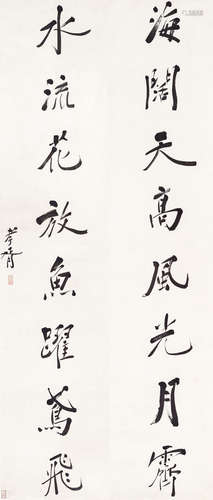 海闊天高風光月霽
水流花放魚躍鳶飛
孝胥